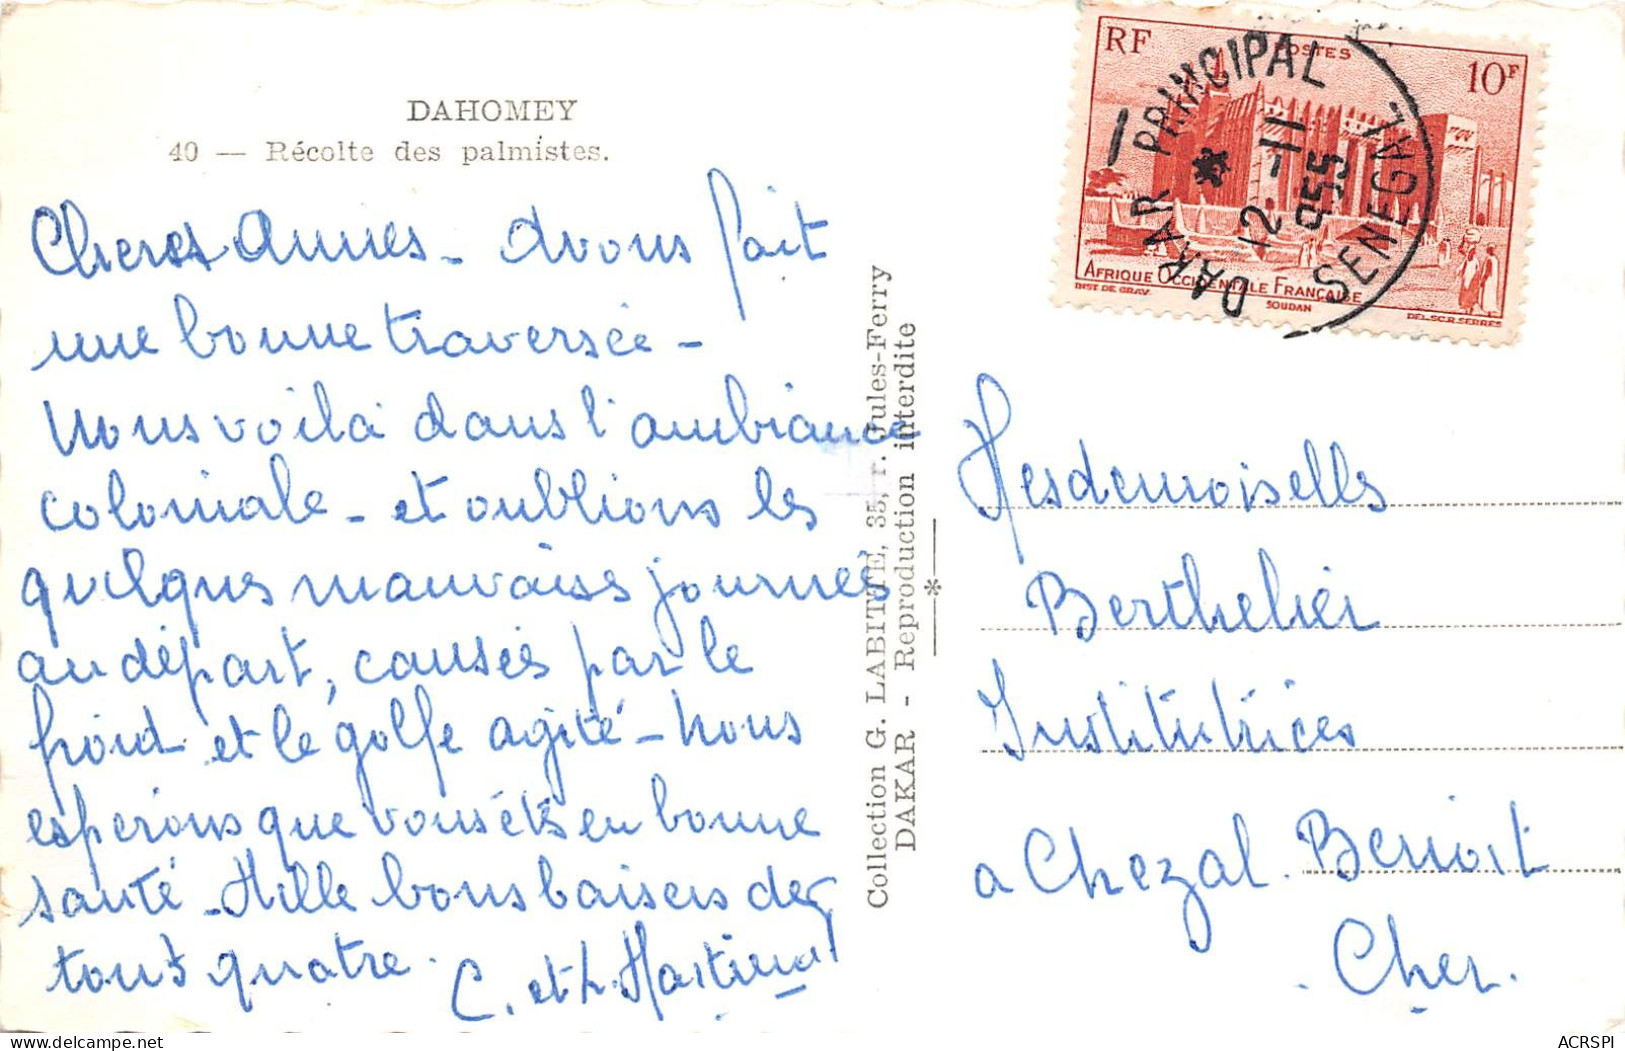 DAHOMEY
40 — Récolte des palmistes.
Cheres Annes - Avons fait
une bonne traversée -
Nous voilà dans l'ambiance
coloniale - et oublions les
quelques mauvaises journées
au départ, causées par le
froid et le golfe agité - Nous
esperons que vous étes en bonne
santé - Mille bons baisers de
tous quatre.
C. et L. Martin
Collection G. LABITTE, 35, r. Jules-Ferry
DAKAR - Reproduction interdite
RF
POSTES
10F
AFRIQUE OCCIDENTALE FRANÇAISE
DIST DE GRAV.
SOUDAN
DEL. SC. R. SERRES
DAKAR PRINCIPAL
12-11
955
SENEGAL
Mesdemoiselles
Berthelier
Institutrices
a Chezal. Benoit
. Cher.
ACRSPI